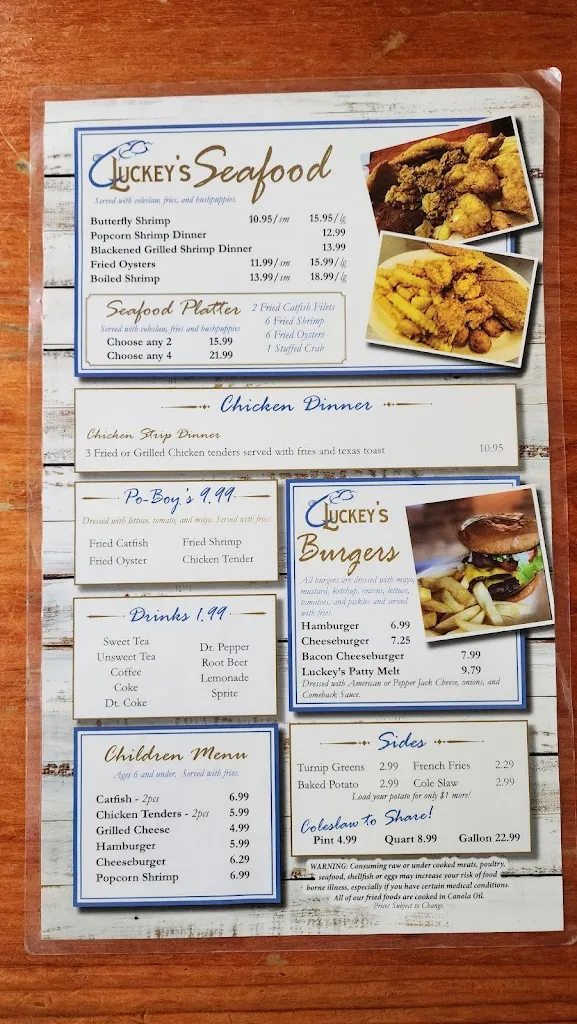 LUCKEY'S Seafood
Served with coleslaw, fries, and hushpuppies.
Butterfly Shrimp 10.95/sm 15.95/lg
Popcorn Shrimp Dinner 12.99
Blackened Grilled Shrimp Dinner 13.99
Fried Oysters 11.99/sm 15.99/lg
Boiled Shrimp 13.99/sm 18.99/lg
Seafood Platter
Served with coleslaw, fries and hushpuppies
Choose any 2 15.99
Choose any 4 21.99
2 Fried Catfish Filets
6 Fried Shrimp
6 Fried Oysters
1 Stuffed Crab
Chicken Dinner
Chicken Strip Dinner
3 Fried or Grilled Chicken tenders served with fries and texas toast 10.95
Po-Boy's 9.99
Dressed with lettuce, tomato, and mayo. Served with fries
Fried Catfish Fried Shrimp
Fried Oyster Chicken Tender
Drinks 1.99
Sweet Tea
Unsweet Tea
Coffee
Coke
Dt. Coke
Dr. Pepper
Root Beer
Lemonade
Sprite
LUCKEY'S
Burgers
All burgers are dressed with mayo,
mustard, ketchup, onions, lettuce,
tomatoes, and pickles and served
with fries.
Hamburger 6.99
Cheeseburger 7.25
Bacon Cheeseburger 7.99
Luckey's Patty Melt 9.79
Dressed with American or Pepper Jack Cheese, onions, and
Comeback Sauce.
Children Menu
Ages 6 and under. Served with fries.
Catfish - 2pcs 6.99
Chicken Tenders - 2pcs 5.99
Grilled Cheese 4.99
Hamburger 5.99
Cheeseburger 6.29
Popcorn Shrimp 6.99
Sides
Turnip Greens 2.99 French Fries 2.29
Baked Potato 2.99 Cole Slaw 2.99
Load your potato for only $1 more!
Coleslaw to Share!
Pint 4.99 Quart 8.99 Gallon 22.99
WARNING: Consuming raw or under cooked meats, poultry,
seafood, shellfish or eggs may increase your risk of food
borne illness, especially if you have certain medical conditions.
All of our fried foods are cooked in Canola Oil.
Prices Subject to Change.